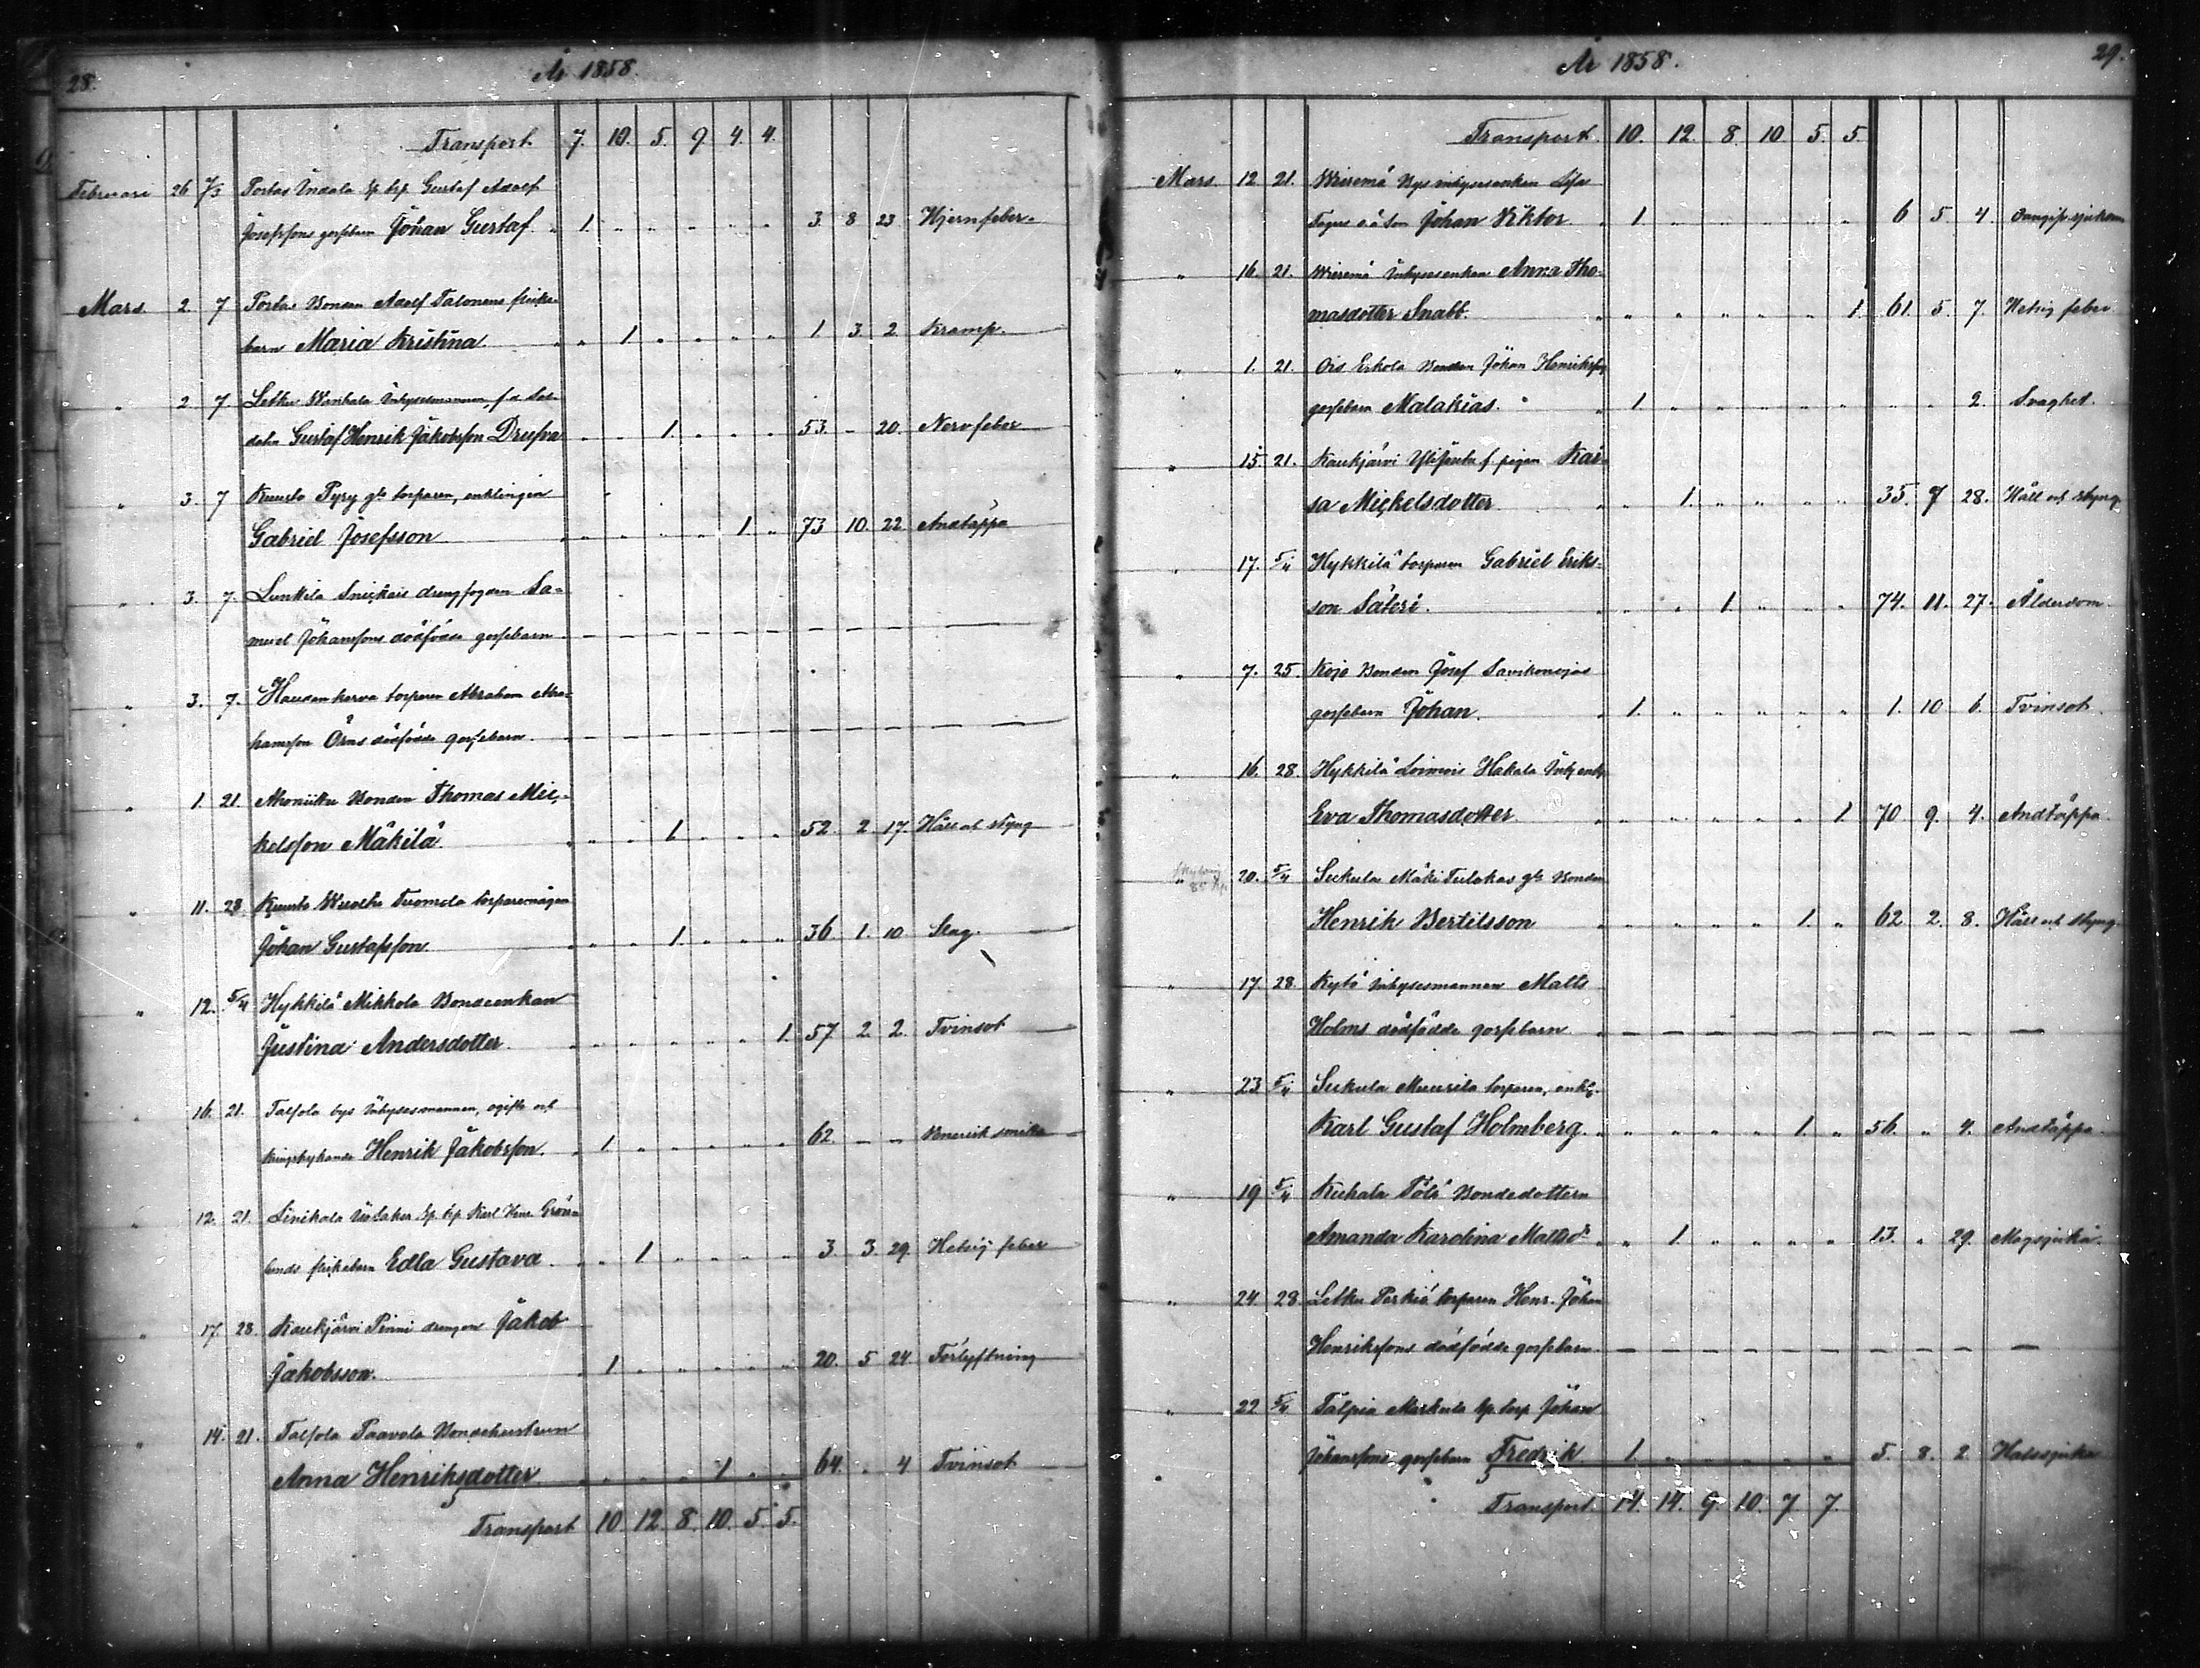 28.
År 1858.
Transport 7. 10. 5. 9 4. 4.
Februari 26 7/3 Portas Gustaf Adolf
Josefssons gossebarn Johan Gustaf. 1. 3 8 23 Hjernfeber
Mars 2. 7 Portas Bonden Adolf Talonens flicke-
barn Maria Kristina 1 1 3 2 Kramp.
" 2 7. Letku Wanhala Inhysesmannen, f.d. Sol-
daten Gustaf Henrik Jakobsson 1. 53. - 20. Nervfeber
" 3. 7 Kuusto Pyry gle torparen, enklingen
Gabriel Josefsson 1. 73 10. 22. Andtäppa
" 3. 7. Lunkila drengfogden Sa-
muel Johanssons dödfödde gossebarn
" 3. 7. Haudankorva torparen Abraham Abra-
hamsson Örns dödfödde gossebarn
" 1. 21. Bonden Thomas Mic-
kelsson Mäkilä 1. 52. 2 17. Håll och styng
" 11. 28. Kuusto Tuomola torparemågen
Johan Gustafsson 1. 36. 1. 10. Slag.
" 12. 5/4 Hykkilä Mikkola Bondeenkan
Justina Andersdotter 1. 57 2 2. Tvinsot
16. 21. Talsola bys Inhysesmannen, ogifte och
Henrik Jakobsson. 1. 62. - " Venerisk smitta
12. 21. Sinikala Karl Henr. Grön-
lunds flickebarn Edla Gustava 1 3 3 29. Hetsig feber
" 17. 28. Kaukjärvi Pinni drengen Jakob
Jakobsson. 1 20. 5 24. Förlyftning
" 14. 21. Talsola Paavola Bondehustrun
Anna Henriksdotter 1 64. " 4 Tvinsot
Transport 10 12 8. 10. 5. 5.
År 1858.
29.
Transport 10. 12. 8 10. 5. 5.
Mars 12 21. Bys inhysesenkan
o.ä. Son Johan Viktor. 1. 6 5. 4.
" 16. 21. Inhysesenkan Anna Tho-
masdotter Snabb. 1. 61. 5. 7. Hetsig feber.
" 1. 21. Ois Erkola Bonden Johan Henrikssons
gossebarn Malakias. 1. " " 2. Svaghet.
" 15. 21. Kaukjärvi f. pigan Kai-
sa Mickelsdotter 1. 35. 9 28. Håll och styng
" 17. 5/4 Hykkilä torparen Gabriel Eriks-
son Säteri. 1. 74. 11. 27. Ålderdom
" 7. 25. Kojo Bonden Josef Savikonojas
gossebarn Johan. 1. 1. 10 6. Tvinsot.
" 16. 28. Hykkilä Loimois Hakala Inh. enk.
Eva Thomasdotter 1. 70. 9. 4. Andtäppa.
20. 5/4 Sukula Mäki Tulokas gle Bonden
Henrik Bertilsson 1. 62 2. 8. Håll och styng.
" 17. 28. Kytö Inhysesmannen Matts
Holms dödfödde gossebarn
" 23 5/4 Sukula Muurila torparen, enkl.
Karl Gustaf Holmberg. 1. 56. " 4. Andtäppa.
" 19 5/4 Kuhala Tölö Bondedottern
Amanda Karolina Mattsdr 1. 13. " 29. Magsjuka.
" 24. 28. Letku Perkiö torparen Henr. Johan
Henrikssons dödfödde gossebarn
" 22 5/4 Markula Johan
Johanssons gossebarn Fredrik 1. 5. 8. 2. Halssjuka
Transport. 14. 14. 9. 10. 7 7.